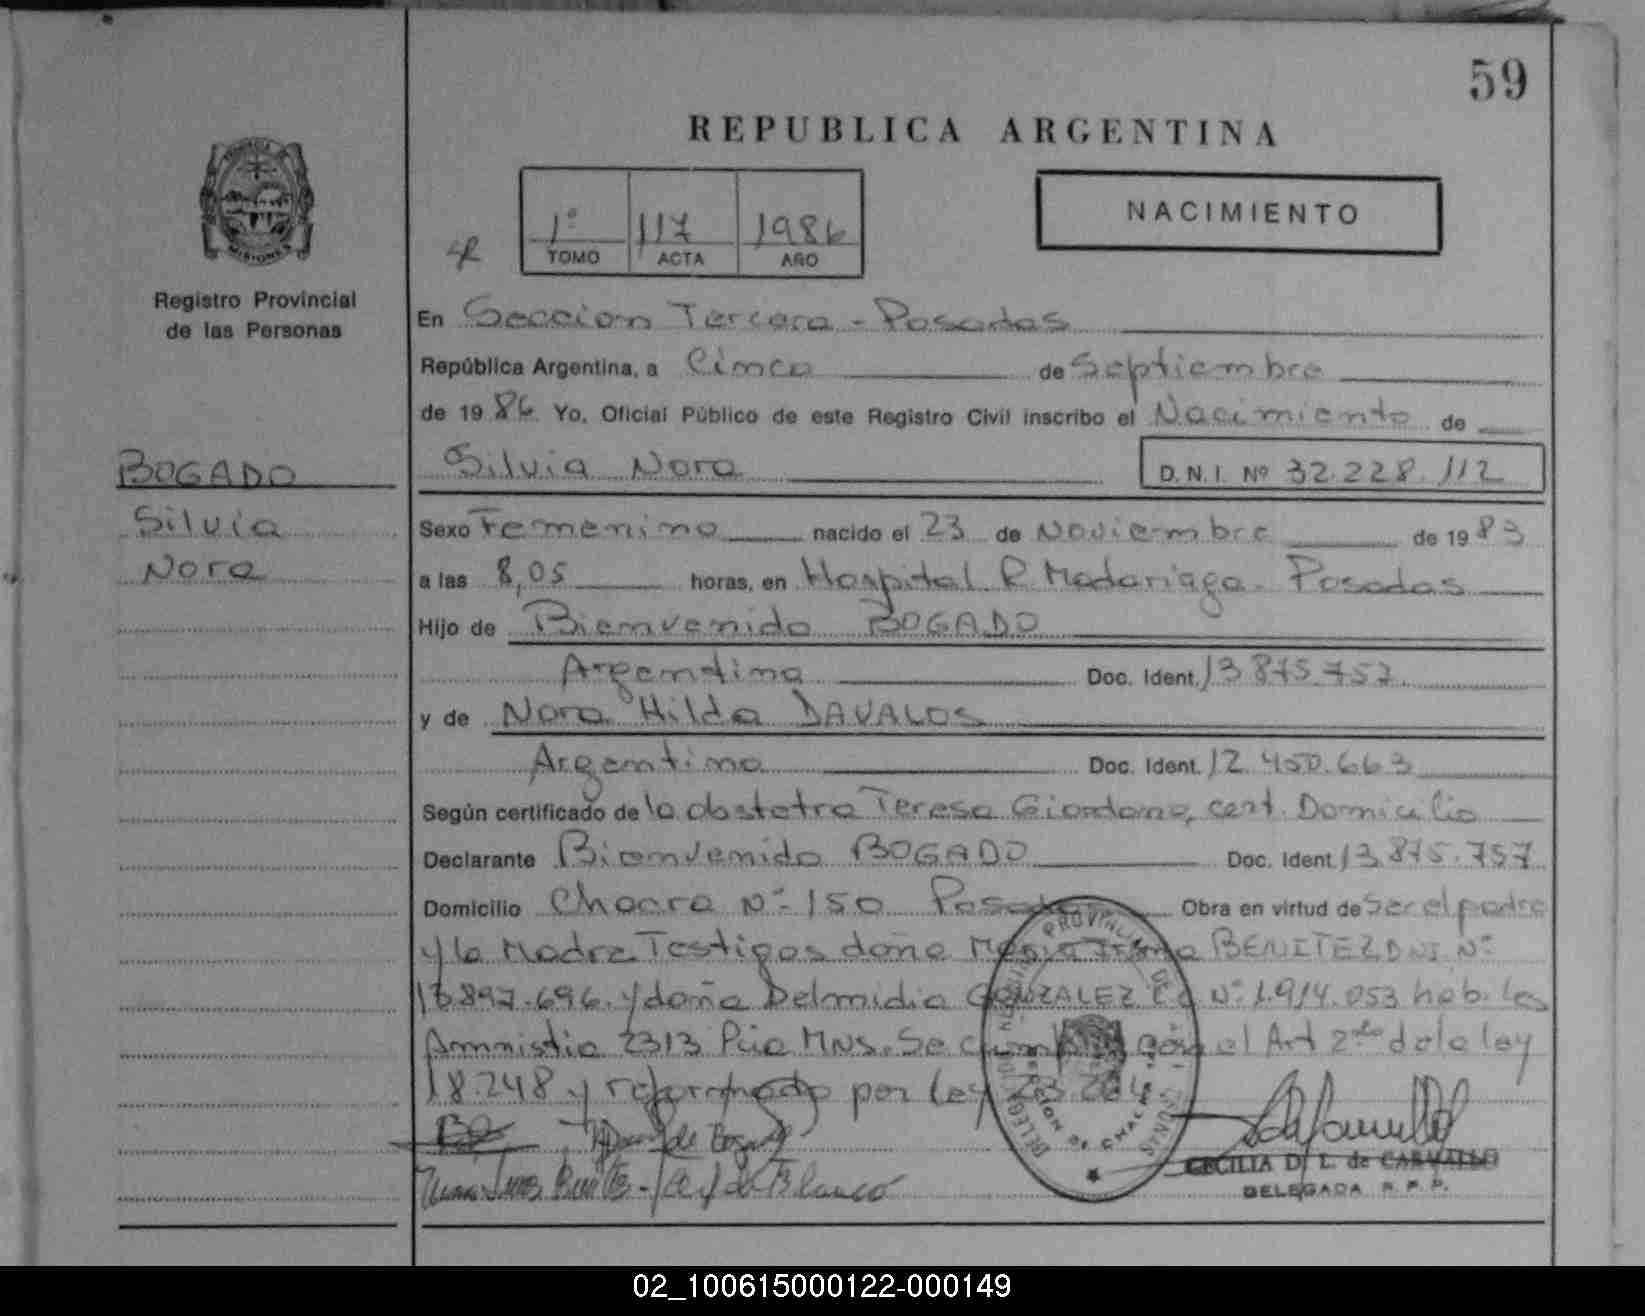 59
REPUBLICA ARGENTINA
1º 117 1986
TOMO ACTA AÑO
NACIMIENTO
MISIONES
Registro Provincial
de las Personas
En Seccion Tercera - Posadas
República Argentina, a Cinco de Septiembre
de 1986 Yo, Oficial Público de este Registro Civil inscribo el Nacimiento de
BOGADO
Silvia Nora D.N.I. Nº 32.228.112
Silvia
Nora
Sexo Femenino nacido el 23 de Noviembre de 1983
a las 8,05 horas, en Hospital R. Madariaga - Posadas
Hijo de Bienvenido BOGADO
Argentino Doc. Ident. 13.875.757
y de Nora Hilda DAVALOS
Argentina Doc. Ident. 12.450.663
Según certificado de la obstetra Teresa Giordano, cert. Domicilio
Declarante Bienvenido BOGADO Doc. Ident. 13.875.757
Domicilio Chacra Nº 150 Posadas Obra en virtud de Ser el padre
y la Madre Testigos doña BENITEZ DNI. Nº
13.897.696. y doña Delmidia GONZALEZ Nº 1.914.053 hab. Les
Amnistia 2313 Pcia Mns. Se con el Art 2do de la ley
18.248 y reformado por Ley
CECILIA D. L. de CARVALLO
DELEGADA R. P. P.
02_100615000122-000149